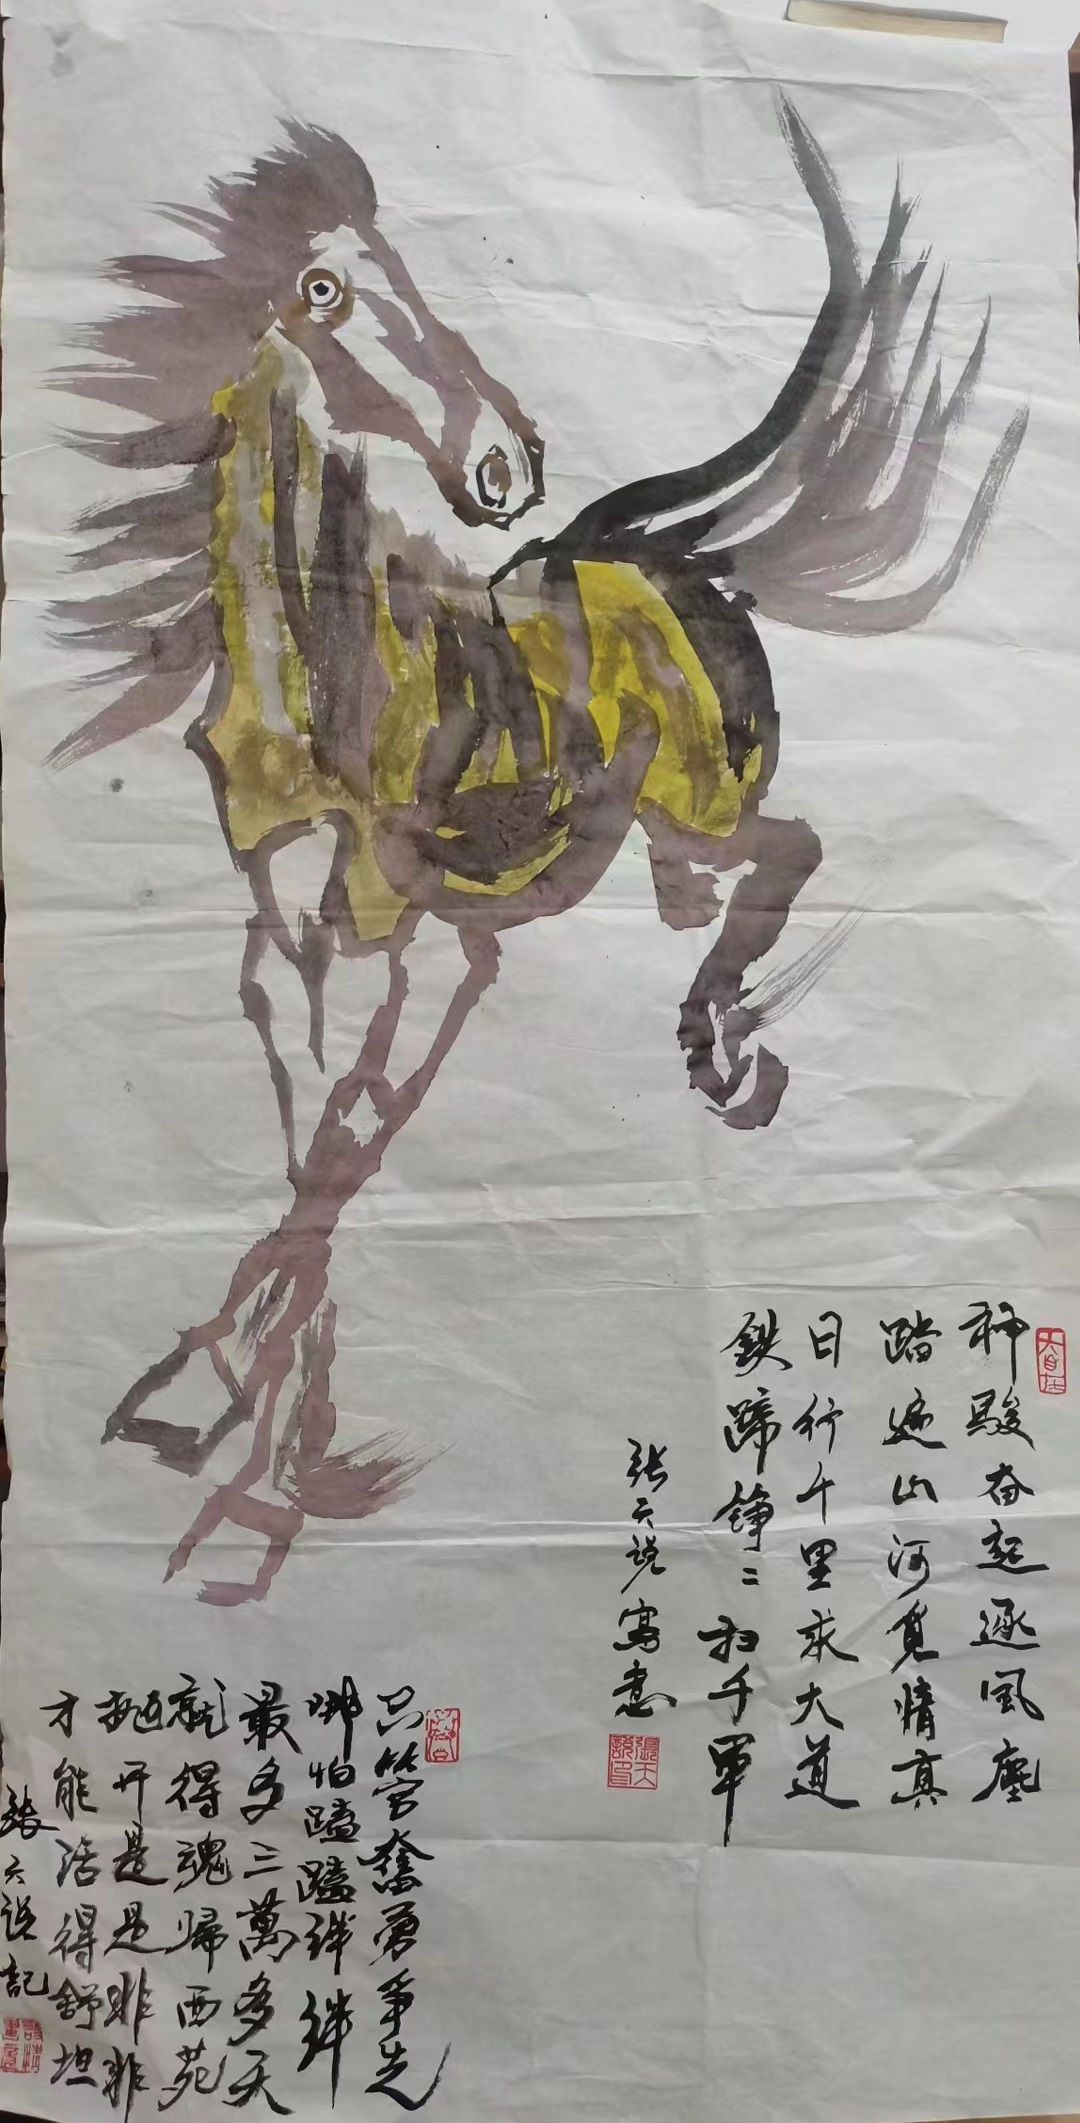 神駿奋起逐风塵
踏遍山河覓情真
日行千里求大道
鉄蹄錚〻扫千軍
张天说寫意
張天說印
只管奮勇爭先
哪怕磕磕绊绊
最多三萬多天
就得魂归西苑
抛开是是非非
才能活得舒坦
张天说記